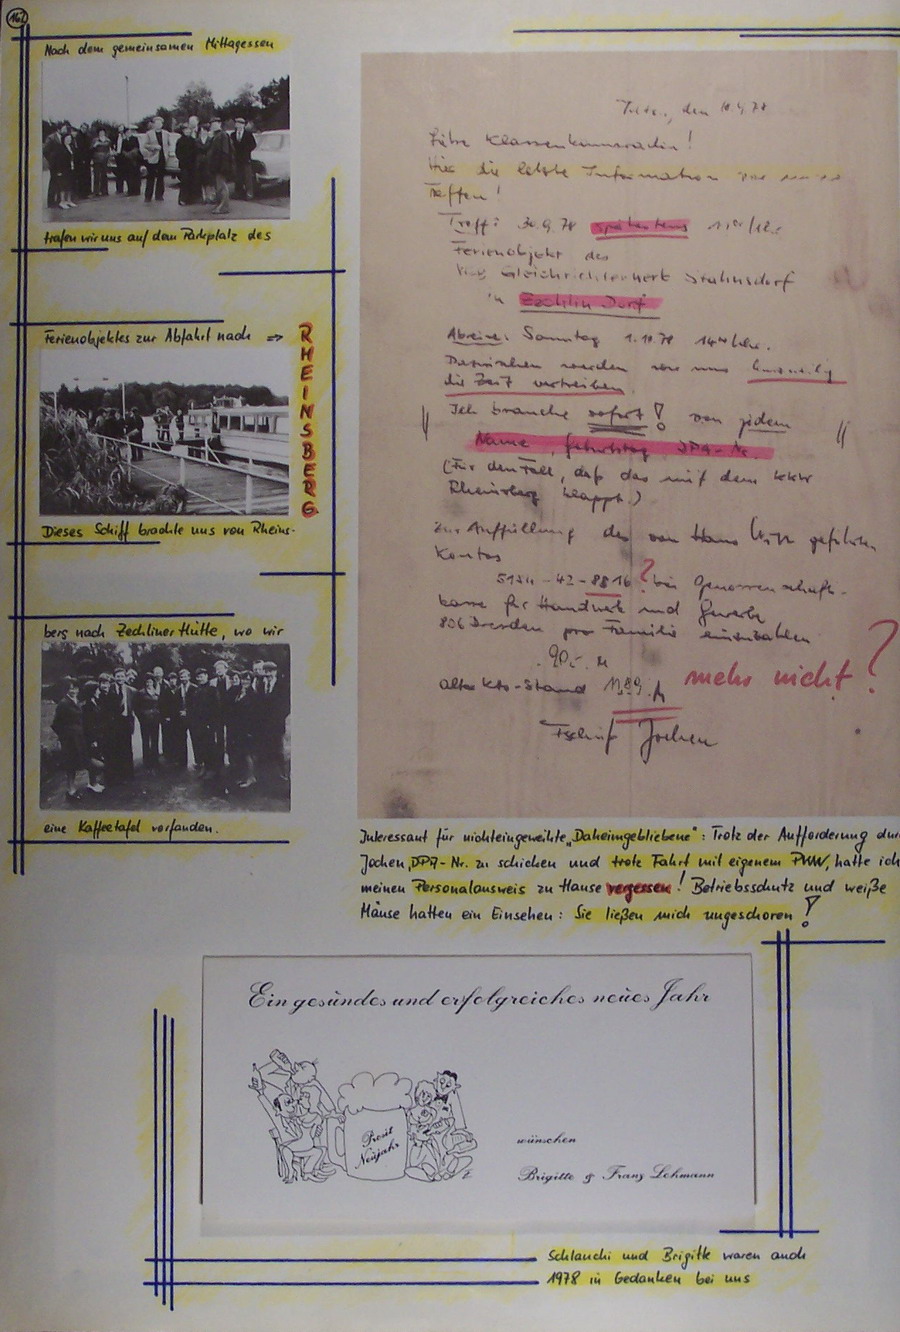 162
Nach dem gemeinsamen Mittagessen
trafen wir uns auf dem Parkplatz des
Ferienobjektes zur Abfahrt nach =>
RHEINSBERG
Dieses Schiff brachte uns von Rheins-
berg nach Zechliner Hütte, wo wir
eine Kaffeetafel vorfanden.
den 18.9.78
Hier die letzte Information
Treffen!
Treff: 30.9.78 spätestens
Ferienobjekt des
Gleichrichterwerk Stahnsdorf
in Zechlin Dorf
Abreise: Sonntag 1.10.78 14
Dazwischen werden wir uns
die Zeit vertreiben.
Ich brauche sofort! von jedem
Name, Geburtstag, DPA-Nr.
(Für den Fall, daß das mit dem KKW
Rheinsberg klappt.)
Zur Auffüllung des von Hans geführten
Kontos
5134-42-8816 ? bei Genossenschafts-
kasse für Handwerk und Gewerbe
806 Dresden pro Familie einzuzahlen
90,- M
alter Kto-Stand M mehr nicht?
Tschüß Jochen
Interessant für nichteingeweihte „Daheimgebliebene": Trotz der Aufforderung
Jochen, DPA-Nr. zu schicken und trotz Fahrt mit eigenem PKW, hatte ich
meinen Personalausweis zu Hause vergessen! Betriebsschutz und weiße
Mäuse hatten ein Einsehen: Sie ließen mich ungeschoren!
Ein gesundes und erfolgreiches neues Jahr
Prosit
Neujahr
wünschen
Brigitte & Franz Lehmann
Schlauchi und Brigitte waren auch
1978 in Gedanken bei uns